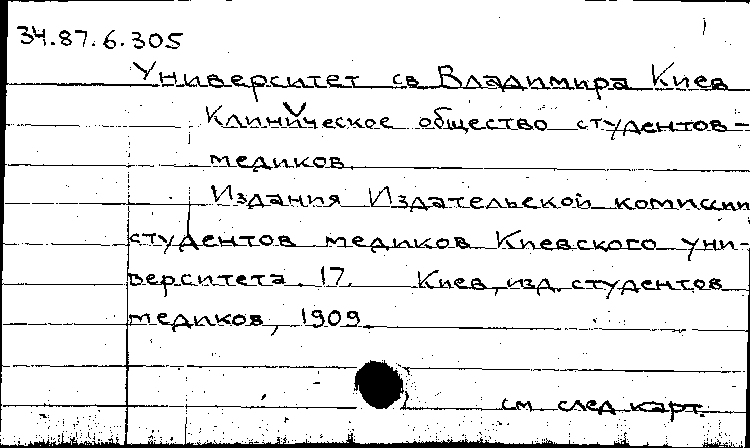 34.87.6.305
Университет св Владимира Киев
Клиническое общество студентов-
медиков.
Издания Издательской комиссии
студентов медиков Киевского уни-
верситета. 17. Киев, изд. студентов
медиков, 1909.
см. след карт.